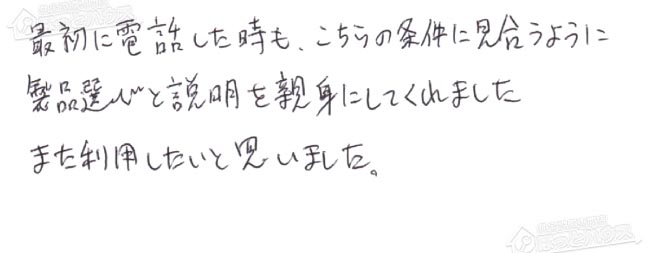 最初に電話した時も、こちらの条件に見合うように
製品選びと説明を親身にしてくれました
また利用したいと思いました。